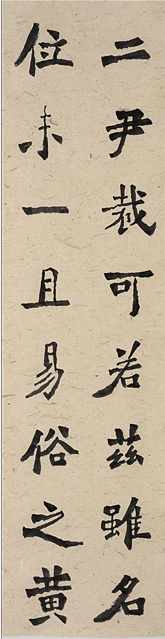 二尹裁可若茲雖名
位未一且易俗之黃